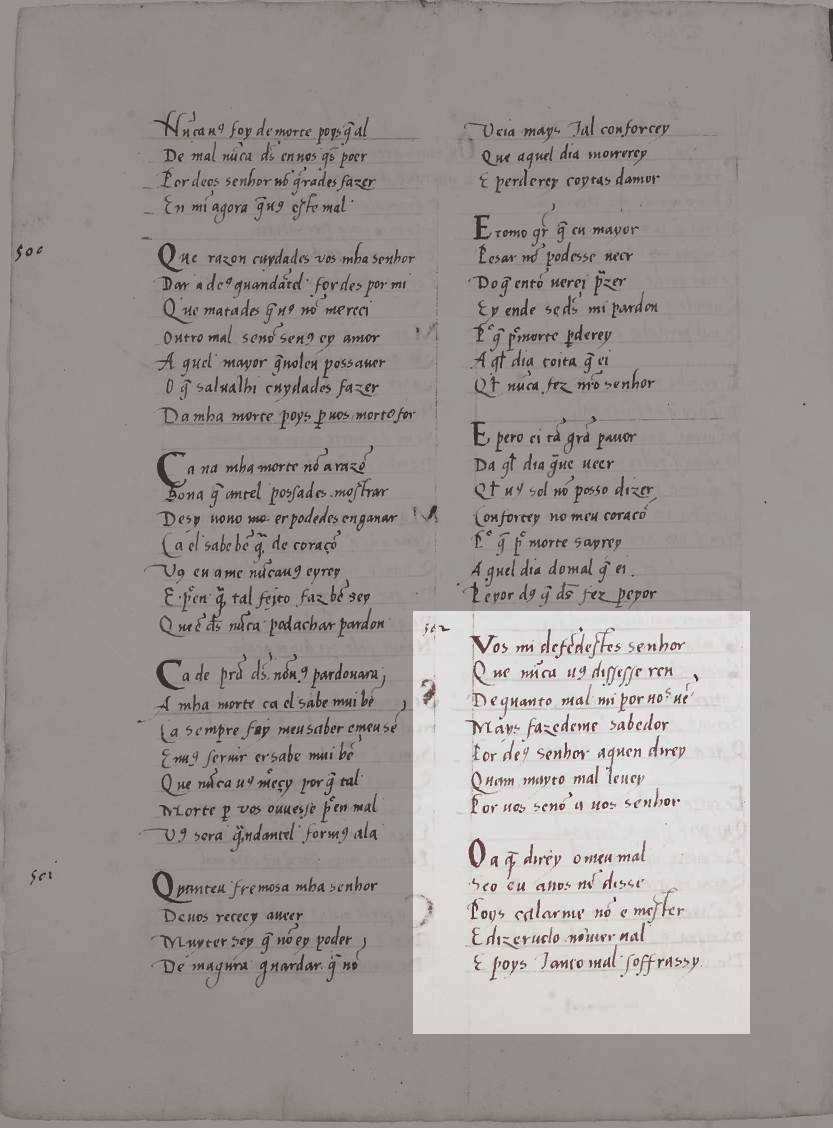 500
Nũcauꝯ foy de morte poys q̃ al
De mal nũca ds̃ en uos q̃s poer
Por deos senhor nõ q̃rades fazer
En mi agora q̃uꝯ este mal
Que razon cuydades vos mha senhor
Dar a deꝯ quandãtel fordes por mi
Que matades q̃uꝯ nõ mereci
Outro mal senõ senꝯ ey amor
Aquel mayor q̃uoleu possauer
O q̃ salualhi cuydades fazer
Da mha morte poys ꝑ uos morto for
Ca na mha morte nõ a razõ
Bona q̃ antel possades mostrar
Desy uono er podedes enganar
Ca el sabe bẽ q̃ de coraçõ
Vꝯ eu ame nũcauꝯ eyrey
E pẽn q̃ tal feito faz bẽ sey
Que ẽ ds̃ nũca podachar pardon
Ca de prã ds̃ nõuꝯ pardouara
A mha morte ca el sabe mui bẽ
Ca sempre foy meu saber e meu sẽ
Enuꝯ seruir er sabe mui bẽ
Que nũca uꝯ m̃eçy por q̃ tal
Morte ꝑ vos ouuesse pẽn mal
Vꝯ sera q̃ndantel formꝯ ala
501
Quanteu fremosa mha senhor
De uos receey aueer
Muyter sey q̃ nõ ey poder
De magura guardar q̃ nõ
Veia mays Tal conforcey
Que aquel dia morrerey
E perderey coytas damor
E como q̃r q̃ eu mayor
Pesar nõ podesse ueer
Do q̃ entõ uerei p̃zer
Ey ende se ds̃ mi pardon
Pº q̃ p̃ morte ꝑderey
Aq̃l dia coita q̃ ei
Q̃l nũca fez nr̃o senhor
E pero ei tã grã pauor
Da q̃l dia q̃ue ueer
Q̃l uꝯ sol nõ posso dizer
Confortey no meu coraçõ
Pº q̃ p̃ morte sayrey
Aquel dia do mal q̃ ei
Peyor dꝯ q̃ ds̃ fez peyor
502
Vos mi defẽdestes senhor
Que nũca uꝯ dissesse ren
De quanto mal mi por uos uẽ
Mays fazedeme sabedor
Por deꝯ senhor aquen direy
Quam muyto mal leuey
Por uos senõ a uos senhor
Oa q̃ direy o meu mal
Seo eu auos nõ disse
Poys calarme nõ e mester
E dizeruolo nõmer ual
E poys Tanto mal soffrassy